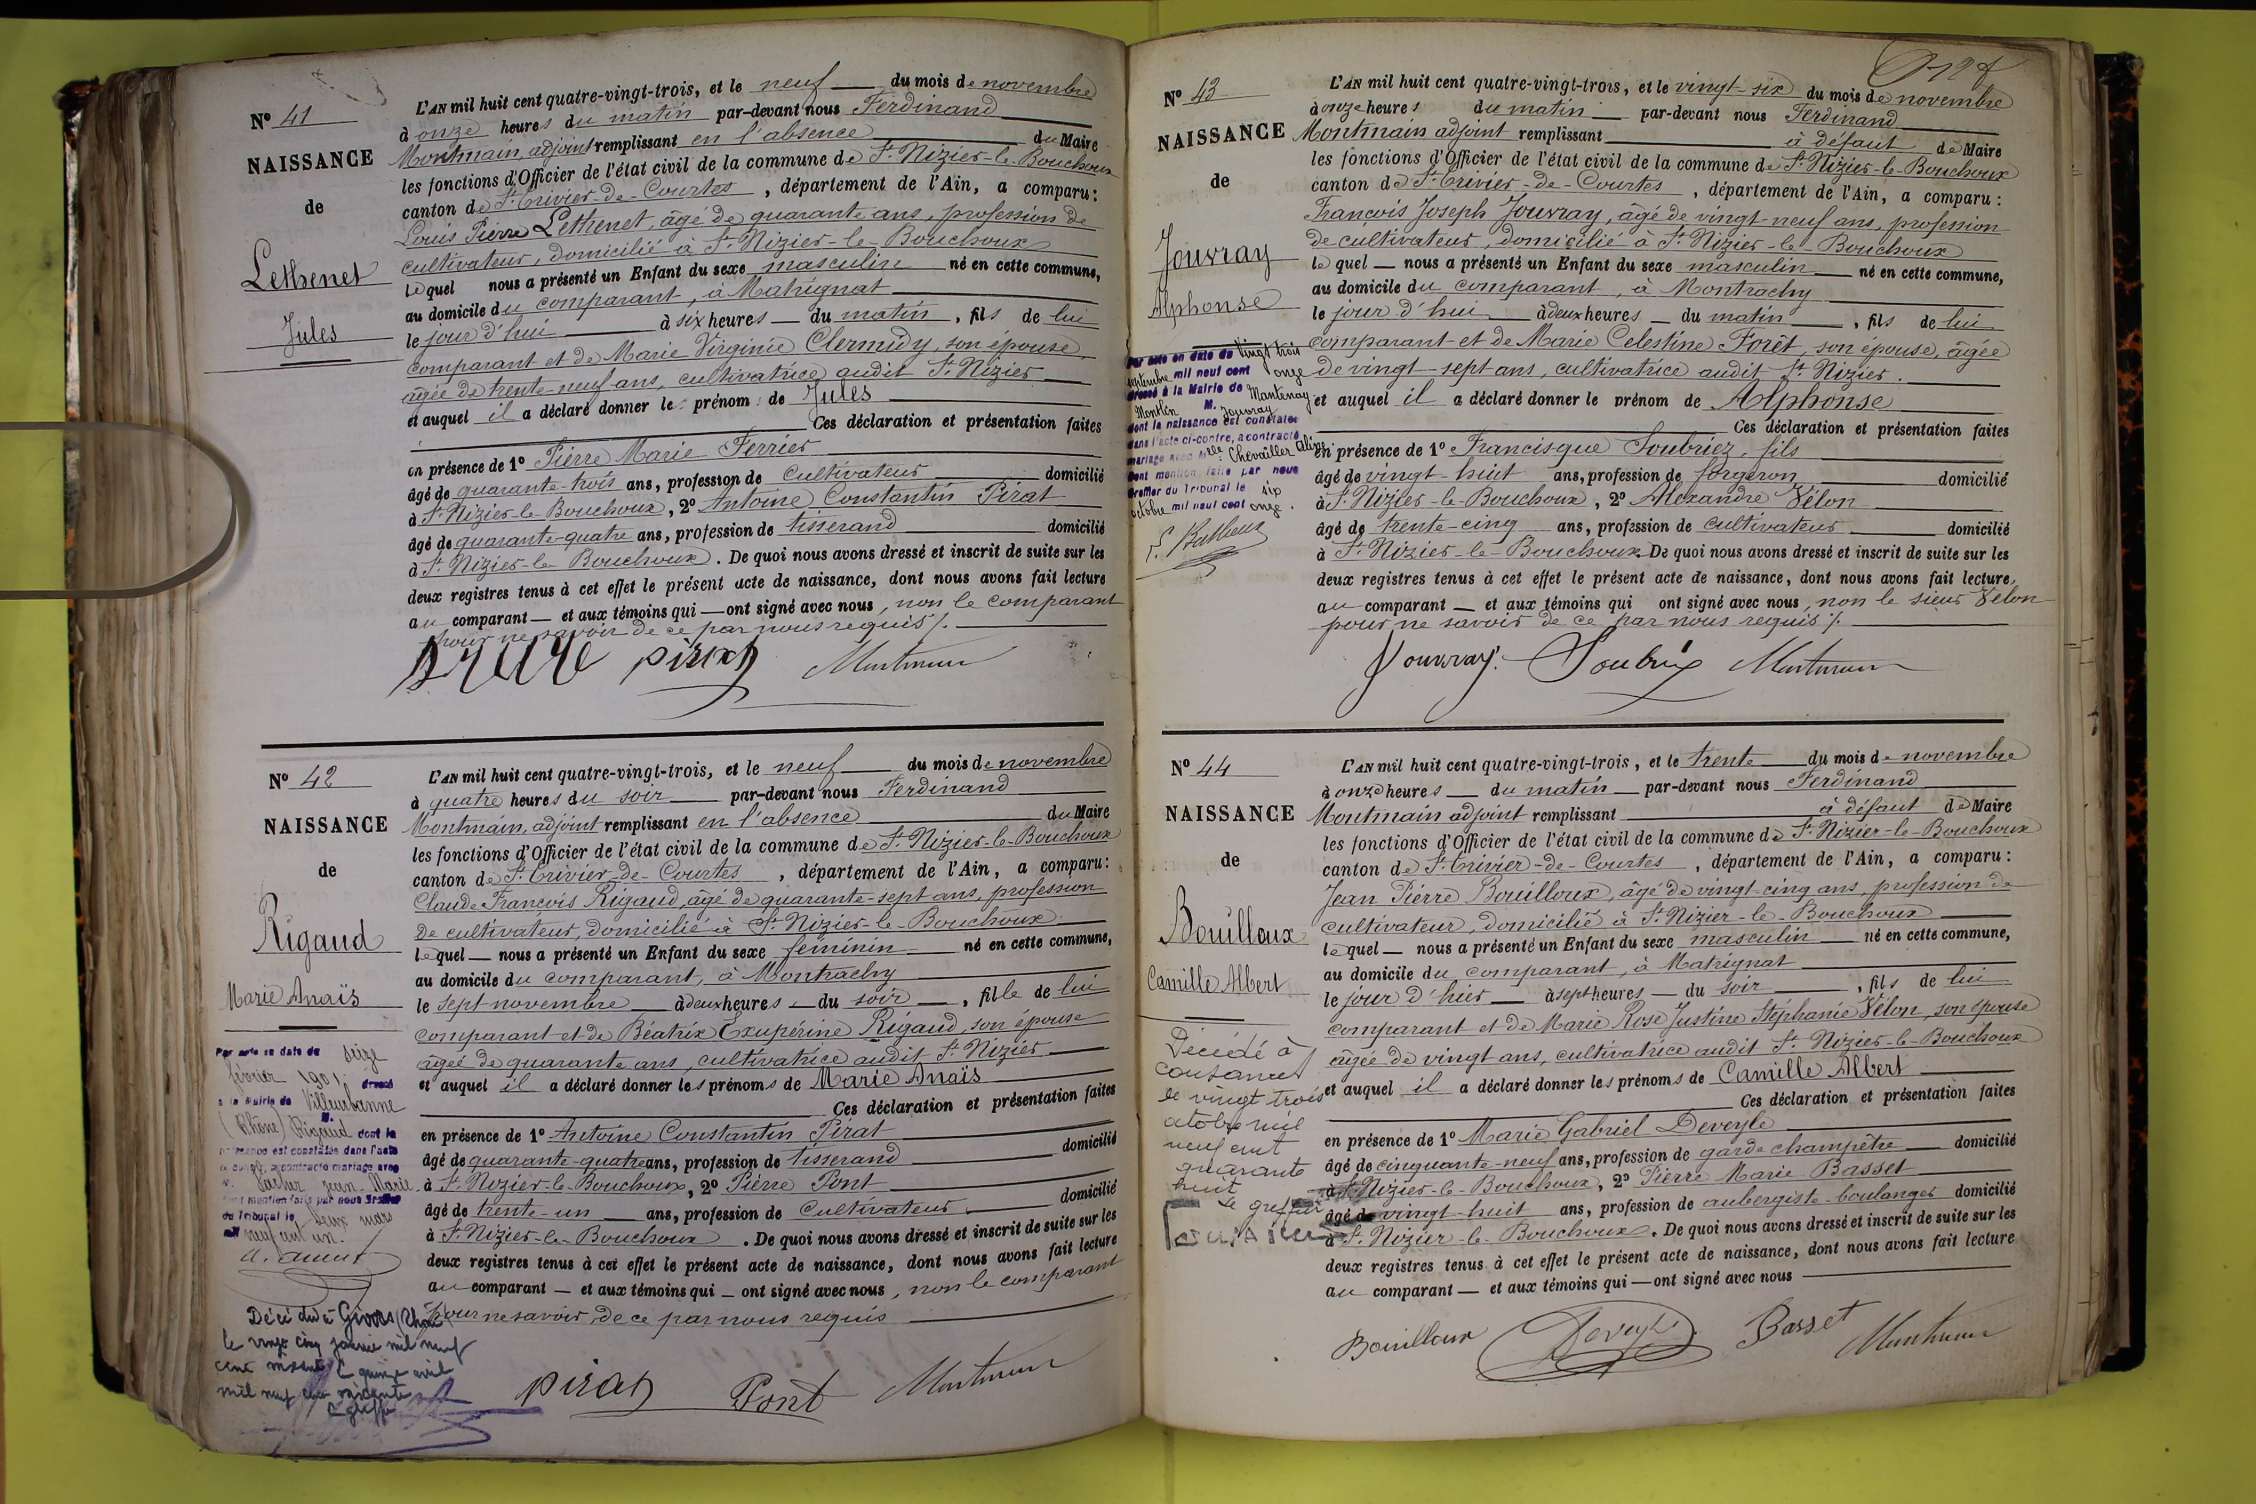 N° 41
NAISSANCE
de
Lethenet
Jules
L'AN mil huit cent quatre-vingt-trois, et le neuf du mois de novembre
à onze heures du matin par-devant nous Ferdinand
Montmain, adjoint remplissant en l'absence du Maire
les fonctions d'Officier de l'état civil de la commune de St. Nizier-le-Bouchoux
canton de St. Trivier-de-Courtes, département de l'Ain, a comparu:
Louis Pierre Lethenet, âgé de quarante ans, profession de
cultivateur, domicilié à St. Nizier-le-Bouchoux
lequel nous a présenté un Enfant du sexe masculin né en cette commune,
au domicile du comparant, à Matrignat
le jour d'hui à six heures du matin, fils de lui
comparant et de Marie Virginie Clermidy, son épouse,
âgée de trente-neuf ans, cultivatrice audit St. Nizier
et auquel il a déclaré donner le prénom de Jules
Ces déclaration et présentation faites
en présence de 1° Pierre Marie Ferrier
âgé de quarante-trois ans, profession de Cultivateur domicilié
à St. Nizier-le-Bouchoux, 2° Antoine Constantin Pirat
âgé de quarante-quatre ans, profession de tisserand domicilié
à St. Nizier-le-Bouchoux. De quoi nous avons dressé et inscrit de suite sur les
deux registres tenus à cet effet le présent acte de naissance, dont nous avons fait lecture
au comparant et aux témoins qui ont signé avec nous, non le comparant
pour ne savoir de ce par nous requis /.
pirat Montmain
N° 42
NAISSANCE
de
Rigaud
Marie Anaïs
Par acte en date du seize
février 1901 dressé
à la Mairie de Villeurbanne
(Rhône) M. Rigaud dont la
naissance est constatée dans l'acte
ci-contre, a contracté mariage avec
M. Jean-Marie
dont mention faite par nous Greffier
du Tribunal le deux mars
mil neuf cent un.
Décédée à Givors (Rhône)
le vingt cinq janvier mil neuf
cent soixante le quinze avril
mil neuf cent soixante
Le greffier
L'AN mil huit cent quatre-vingt-trois, et le neuf du mois de novembre
à quatre heures du soir par-devant nous Ferdinand
Montmain, adjoint remplissant en l'absence du Maire
les fonctions d'Officier de l'état civil de la commune de St. Nizier-le-Bouchoux
canton de St. Trivier-de-Courtes, département de l'Ain, a comparu:
Claude François Rigaud, âgé de quarante-sept ans, profession
de cultivateur, domicilié à St. Nizier-le-Bouchoux
lequel nous a présenté un Enfant du sexe féminin né en cette commune,
au domicile du comparant, à Montrachy
le sept novembre à deux heures du soir, fille de lui
comparant et de Béatrix Exupérine Rigaud, son épouse
âgée de quarante ans, cultivatrice audit St. Nizier
et auquel il a déclaré donner les prénoms de Marie Anaïs
Ces déclaration et présentation faites
en présence de 1° Antoine Constantin Pirat
âgé de quarante-quatre ans, profession de tisserand domicilié
à St. Nizier-le-Bouchoux, 2° Pierre Pont
âgé de trente-un ans, profession de Cultivateur domicilié
à St. Nizier-le-Bouchoux. De quoi nous avons dressé et inscrit de suite sur les
deux registres tenus à cet effet le présent acte de naissance, dont nous avons fait lecture
au comparant et aux témoins qui ont signé avec nous, non le comparant
pour ne savoir de ce par nous requis
pirat Pont Montmain
N° 43
NAISSANCE
de
Jouvray
Alphonse
Par acte en date du vingt trois
septembre mil neuf cent onze
dressé à la Mairie de Mantenay
Montlin M. Jouvray
dont la naissance est constatée
dans l'acte ci-contre, a contracté
mariage avec Melle Chevailler Aline
Dont mention faite par nous
Greffier du Tribunal le six
octobre mil neuf cent onze.
L'AN mil huit cent quatre-vingt-trois, et le vingt-six du mois de novembre
à onze heures du matin par-devant nous Ferdinand
Montmain adjoint remplissant à défaut de Maire
les fonctions d'Officier de l'état civil de la commune de St. Nizier-le-Bouchoux
canton de St. Trivier-de-Courtes, département de l'Ain, a comparu:
François Joseph Jouvray, âgé de vingt-neuf ans, profession
de cultivateur, domicilié à St. Nizier-le-Bouchoux
lequel nous a présenté un Enfant du sexe masculin né en cette commune,
au domicile du comparant, à Montrachy
le jour d'hui à deux heures du matin, fils de lui
comparant et de Marie Celestine Forêt, son épouse, âgée
de vingt-sept ans, cultivatrice audit St. Nizier.
et auquel il a déclaré donner le prénom de Alphonse
Ces déclaration et présentation faites
en présence de 1° Francisque Soubriez, fils
âgé de vingt-huit ans, profession de forgeron domicilié
à St. Nizier-le-Bouchoux, 2° Alexandre Vélon
âgé de trente-cinq ans, profession de cultivateur domicilié
à St. Nizier-le-Bouchoux. De quoi nous avons dressé et inscrit de suite sur les
deux registres tenus à cet effet le présent acte de naissance, dont nous avons fait lecture
au comparant et aux témoins qui ont signé avec nous, non le sieur Vélon
pour ne savoir de ce par nous requis /.
Jouvray. Montmain
N° 44
NAISSANCE
de
Bouilloux
Camille Albert
Décédé à
Coutances
le vingt trois
octobre mil
neuf cent
quarante
huit
Le greffier
L'AN mil huit cent quatre-vingt-trois, et le trente du mois de novembre
à onze heures du matin par-devant nous Ferdinand
Montmain adjoint remplissant à défaut de Maire
les fonctions d'Officier de l'état civil de la commune de St. Nizier-le-Bouchoux
canton de St. Trivier-de-Courtes, département de l'Ain, a comparu:
Jean Pierre Bouilloux, âgé de vingt-cinq ans, profession de
cultivateur, domicilié à St. Nizier-le-Bouchoux
lequel nous a présenté un Enfant du sexe masculin né en cette commune,
au domicile du comparant, à Matrignat
le jour d'hier à sept heures du soir, fils de lui
comparant et de Marie Rose Justine Stéphanie Vélon, son épouse
âgée de vingt ans, cultivatrice audit St. Nizier-le-Bouchoux
et auquel il a déclaré donner les prénoms de Camille Albert
Ces déclaration et présentation faites
en présence de 1° Marie Gabriel Deveyle
âgé de cinquante-neuf ans, profession de garde champêtre domicilié
à St. Nizier-le-Bouchoux, 2° Pierre Marie Basset
âgé de vingt-huit ans, profession de aubergiste-boulanger domicilié
à St. Nizier-le-Bouchoux. De quoi nous avons dressé et inscrit de suite sur les
deux registres tenus à cet effet le présent acte de naissance, dont nous avons fait lecture
au comparant et aux témoins qui ont signé avec nous
Bouilloux Deveyle Basset Montmain